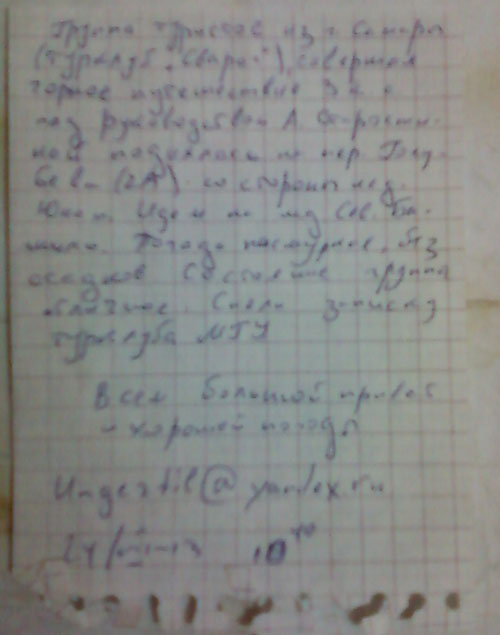 Группа туристов из г. Самары
(турклуб "Сварог"), совершая
горное путешествие 3 к. с.
под руководством А.
поднялась на пер. Голу-
бева (2А) со стороны лед.
Южн. Идем на лед Сев.
Погода пасмурная, без
осадков Состояние группы
отличное. Сняли записку
турклуба МГУ
Всем большой привет
и хорошей погоды
@yandex.ru
10